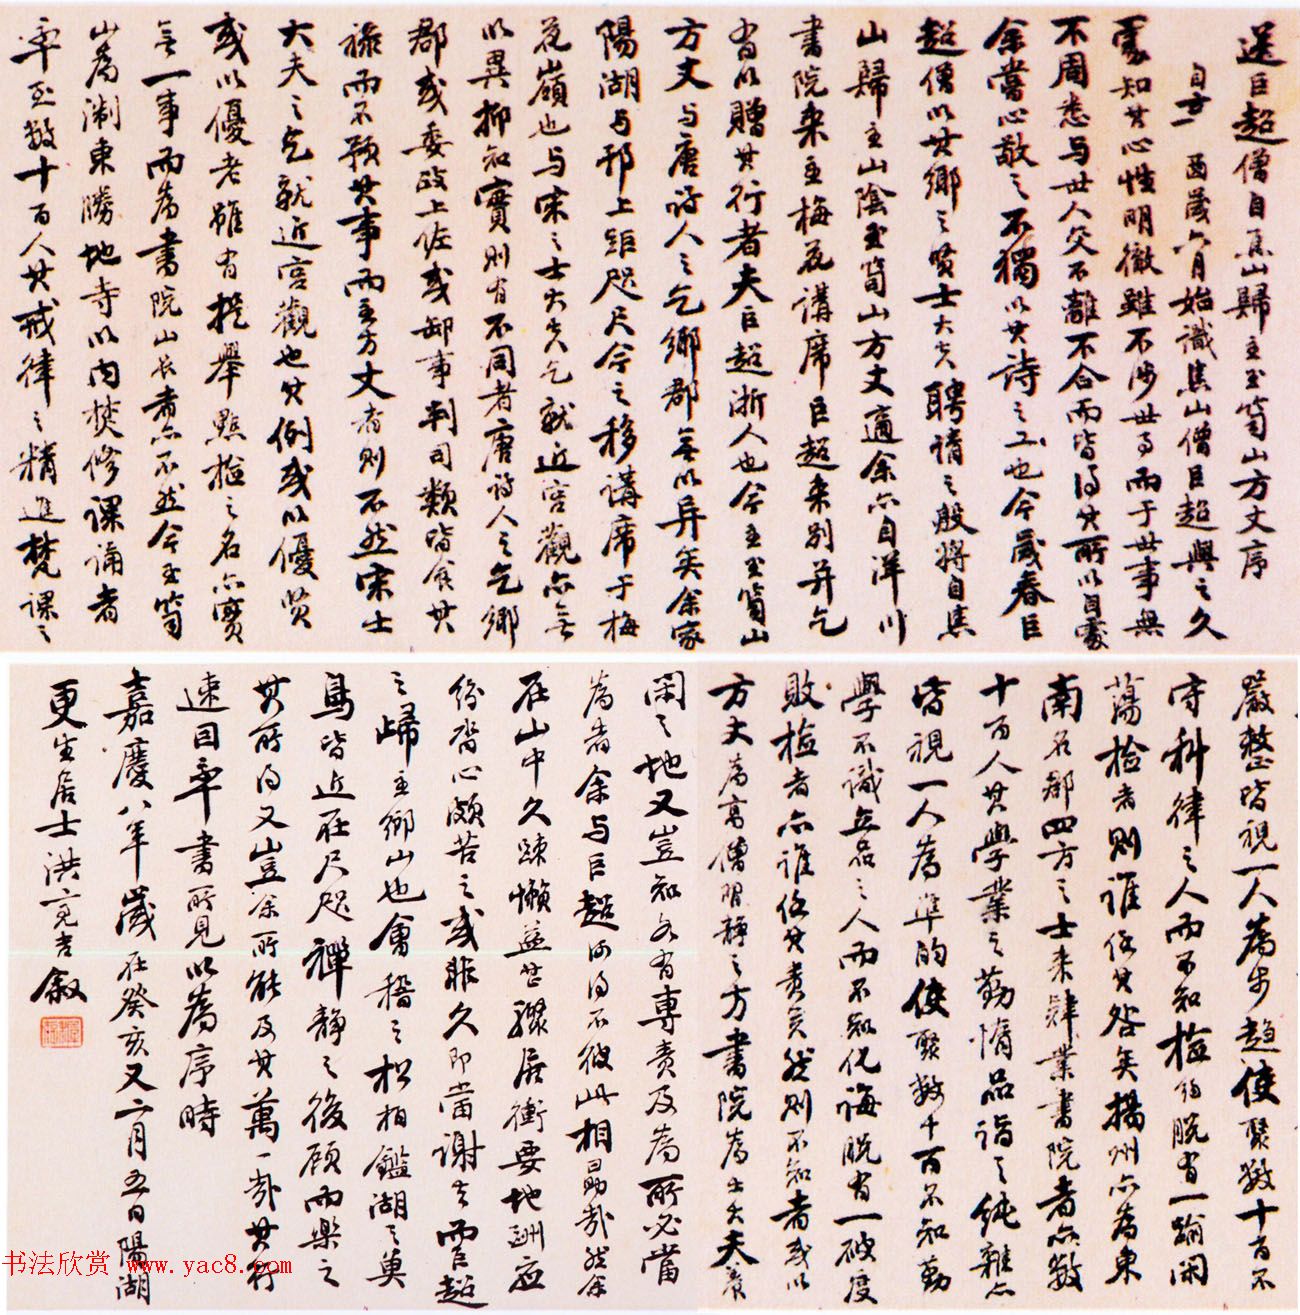 送巨超僧自焦山歸主玉笥山方丈序
自辛酉歲六月始識焦山僧巨超與之久
處知其心性明徹雖不涉世事而于世事無
不周悉与世人交不離不合而皆得其所以自處
余嘗心敬之不獨以其詩之工也今歲春巨
超僧以其鄉之賢士大夫聘請之殷將自焦
山歸主山陰玉笥山方丈適余亦自洋川
書院来主梅花講席巨超来别并乞
有以贈其行者夫巨超浙人也今主玉笥山
方丈与唐詩人之乞鄉郡無以异矣余家
陽湖与邗上距咫尺今之移講席于梅
花嶺也与宋之士大夫乞就近宮觀亦無
以異抑知實則有不同者唐詩人之乞鄉
郡或委政上佐或卸事判司類皆食其
祿而不預其事而主方丈者則不然宋士
大夫之乞就近宮觀也其例或以優賢
或以優老雖有提舉點檢之名亦實
無一事而為書院山長者亦不然今玉笥
山為淛東勝地寺以内焚修課誦者
率至數十百人其戒律之精進梵課之
嚴整皆視一人為步趨使聚數十百不
守科律之人而不知檢約脱有一踰閑
蕩檢者則誰任其咎矣揚州亦為東
南名郡四方之士来肄業書院者亦數
十百人其學業之勤惰品詣之純雜亦
皆視一人為準的使聚數十百不知勤
學不識立品之人而不知化誨脱有一破度
敗檢者亦誰任其責矣然則不知者或以
方丈為高僧習靜之方書院為士大夫養
閑之地又豈知各有專責及為所必當
為者余与巨超何得不彼此相勗哉然余
在山中久疎懶益甚驟居衝要地酬應
紛沓心頗苦之或非久即當謝去而巨超
之歸主鄉山也會稽之松柏鑑湖之奠
鳥皆近在尺咫禪靜之後顧而樂之
其所得又豈余所能及其萬一哉其行
速因率書所見以為序時
嘉慶八年歲在癸亥又二月五日陽湖
更生居士洪亮吉叙
书法欣赏 www.yac8.com